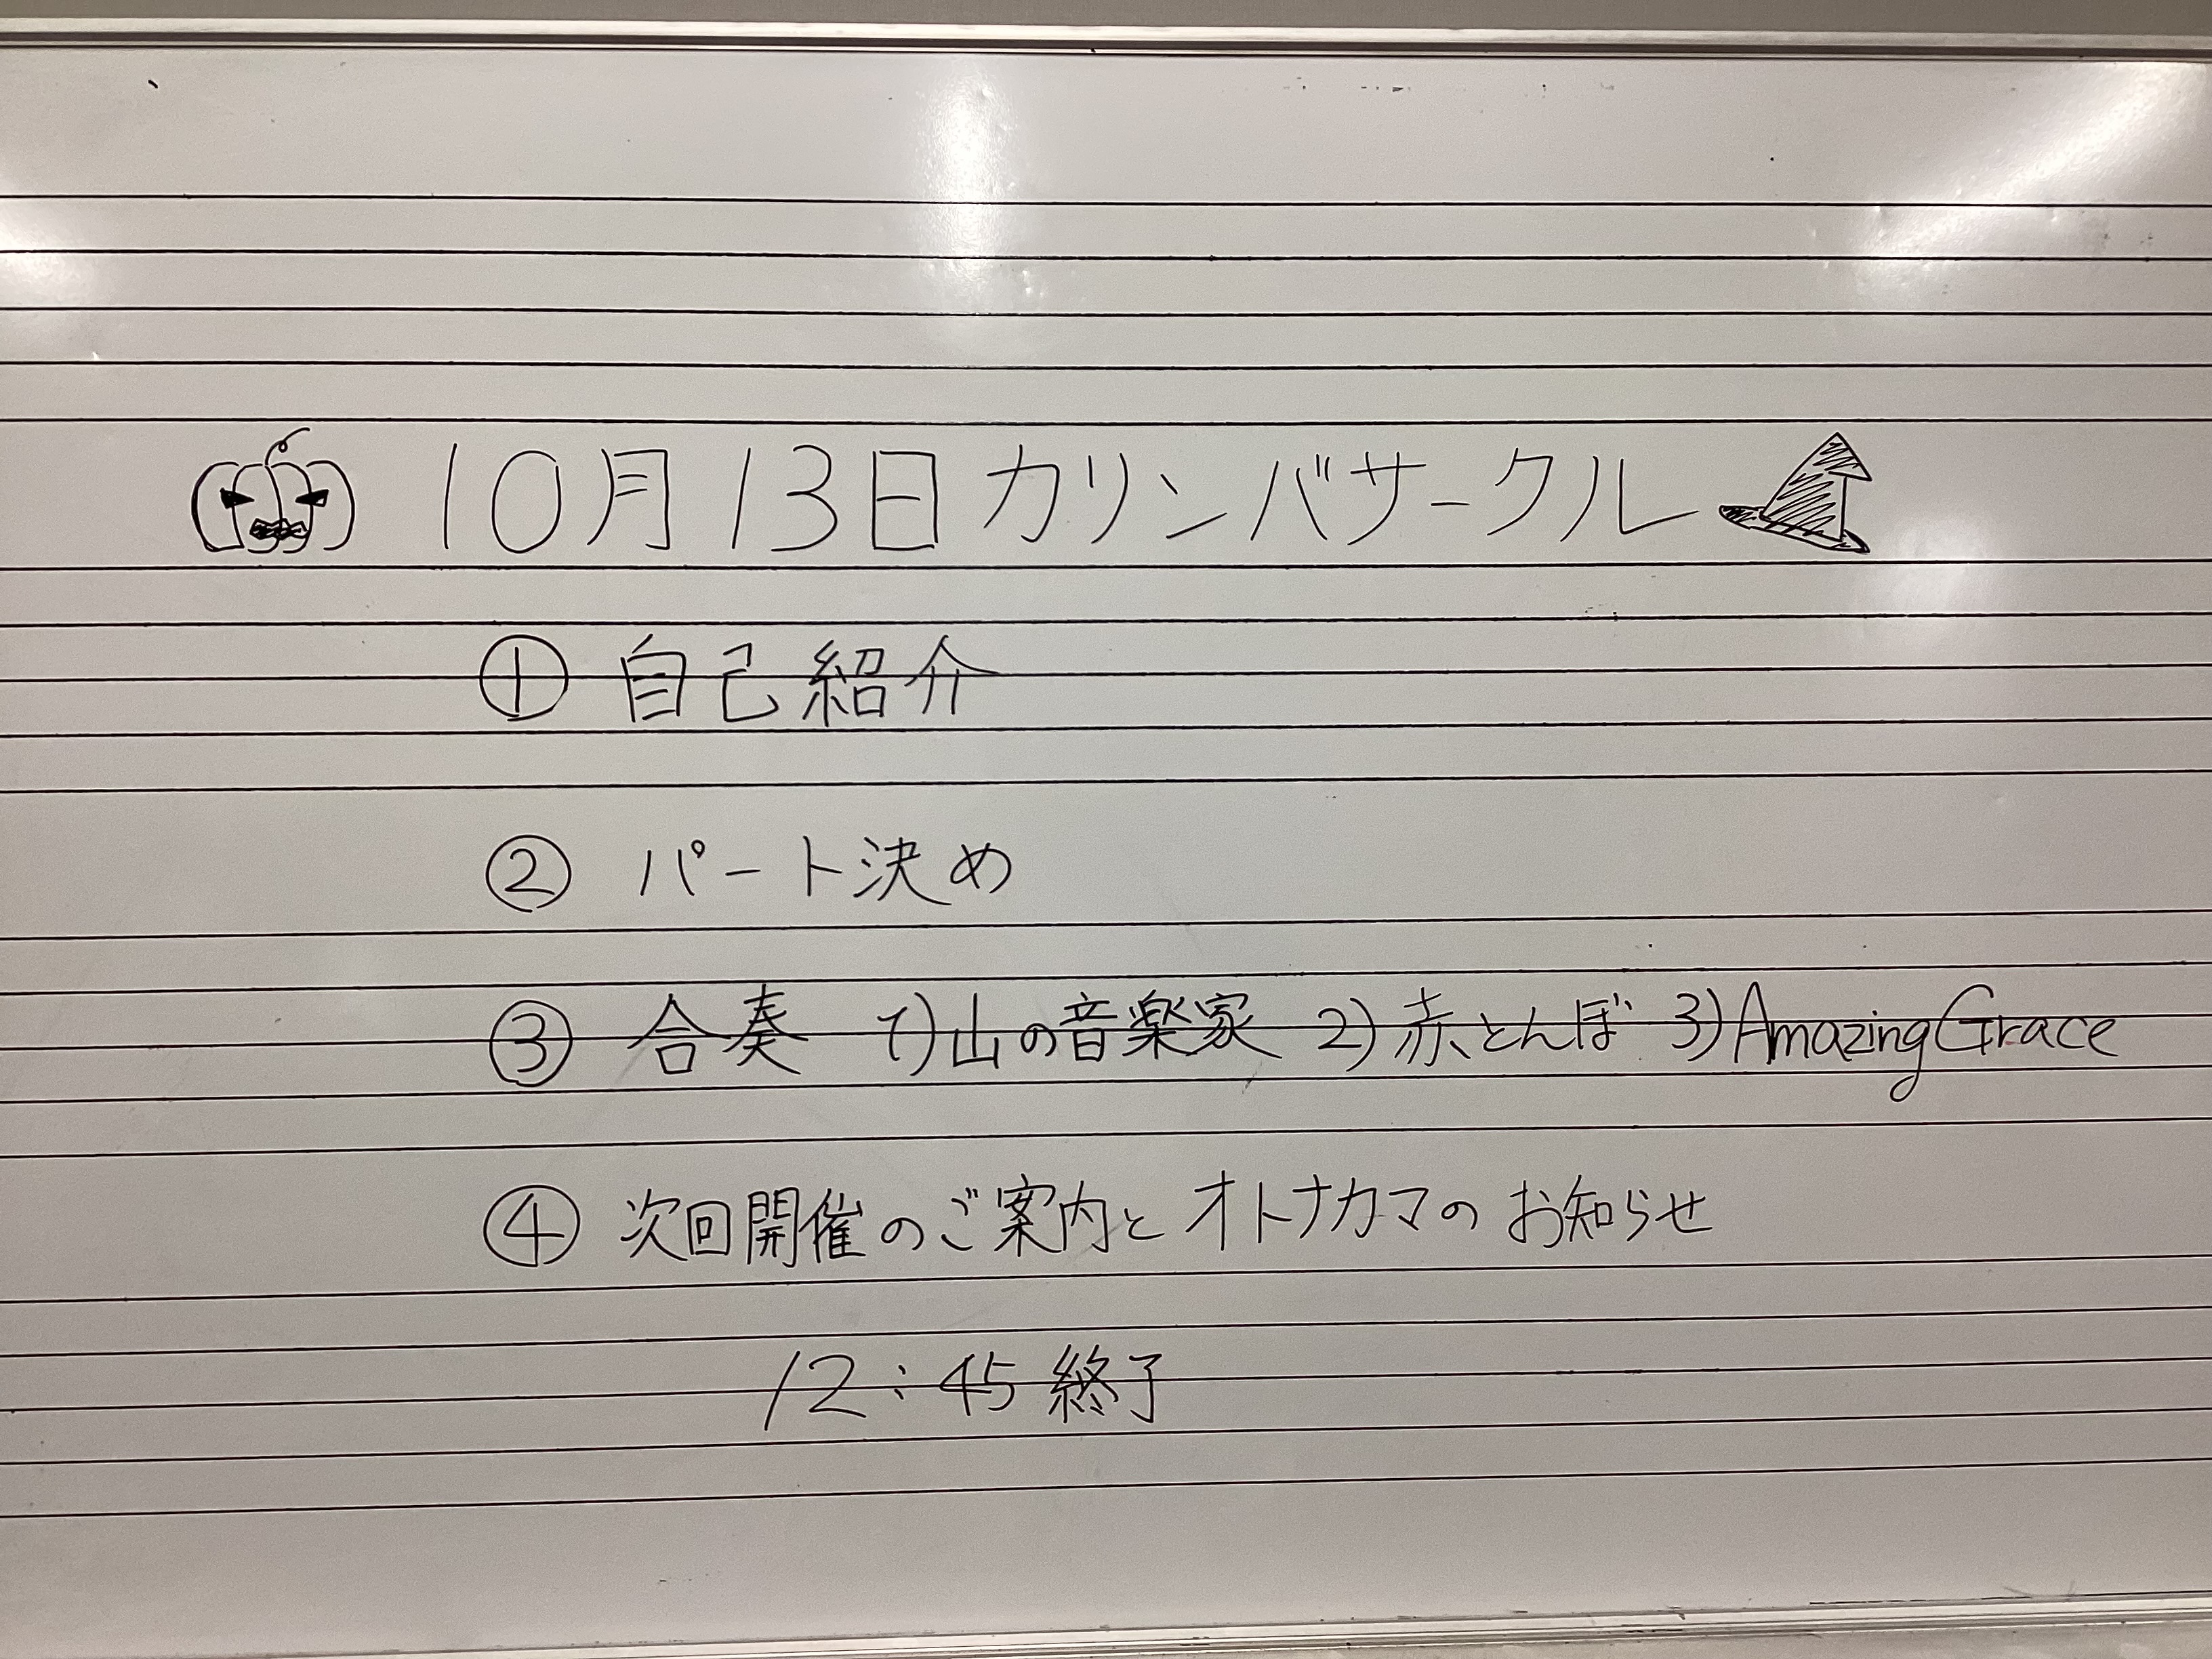 10月13日カリンバサークル
① 自己紹介
② パート決め
③ 合奏 1)山の音楽家 2)赤とんぼ 3)Amazing Grace
④ 次回開催のご案内とオトナカマのお知らせ
12:45終了